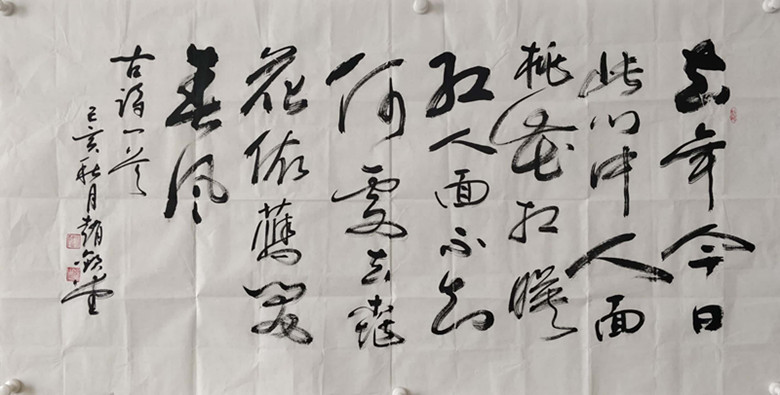 去年今日
此门中人面
桃花相映
红人面不知
何處去桃
花依舊笑
春风
古詩一首
己亥秋月趙